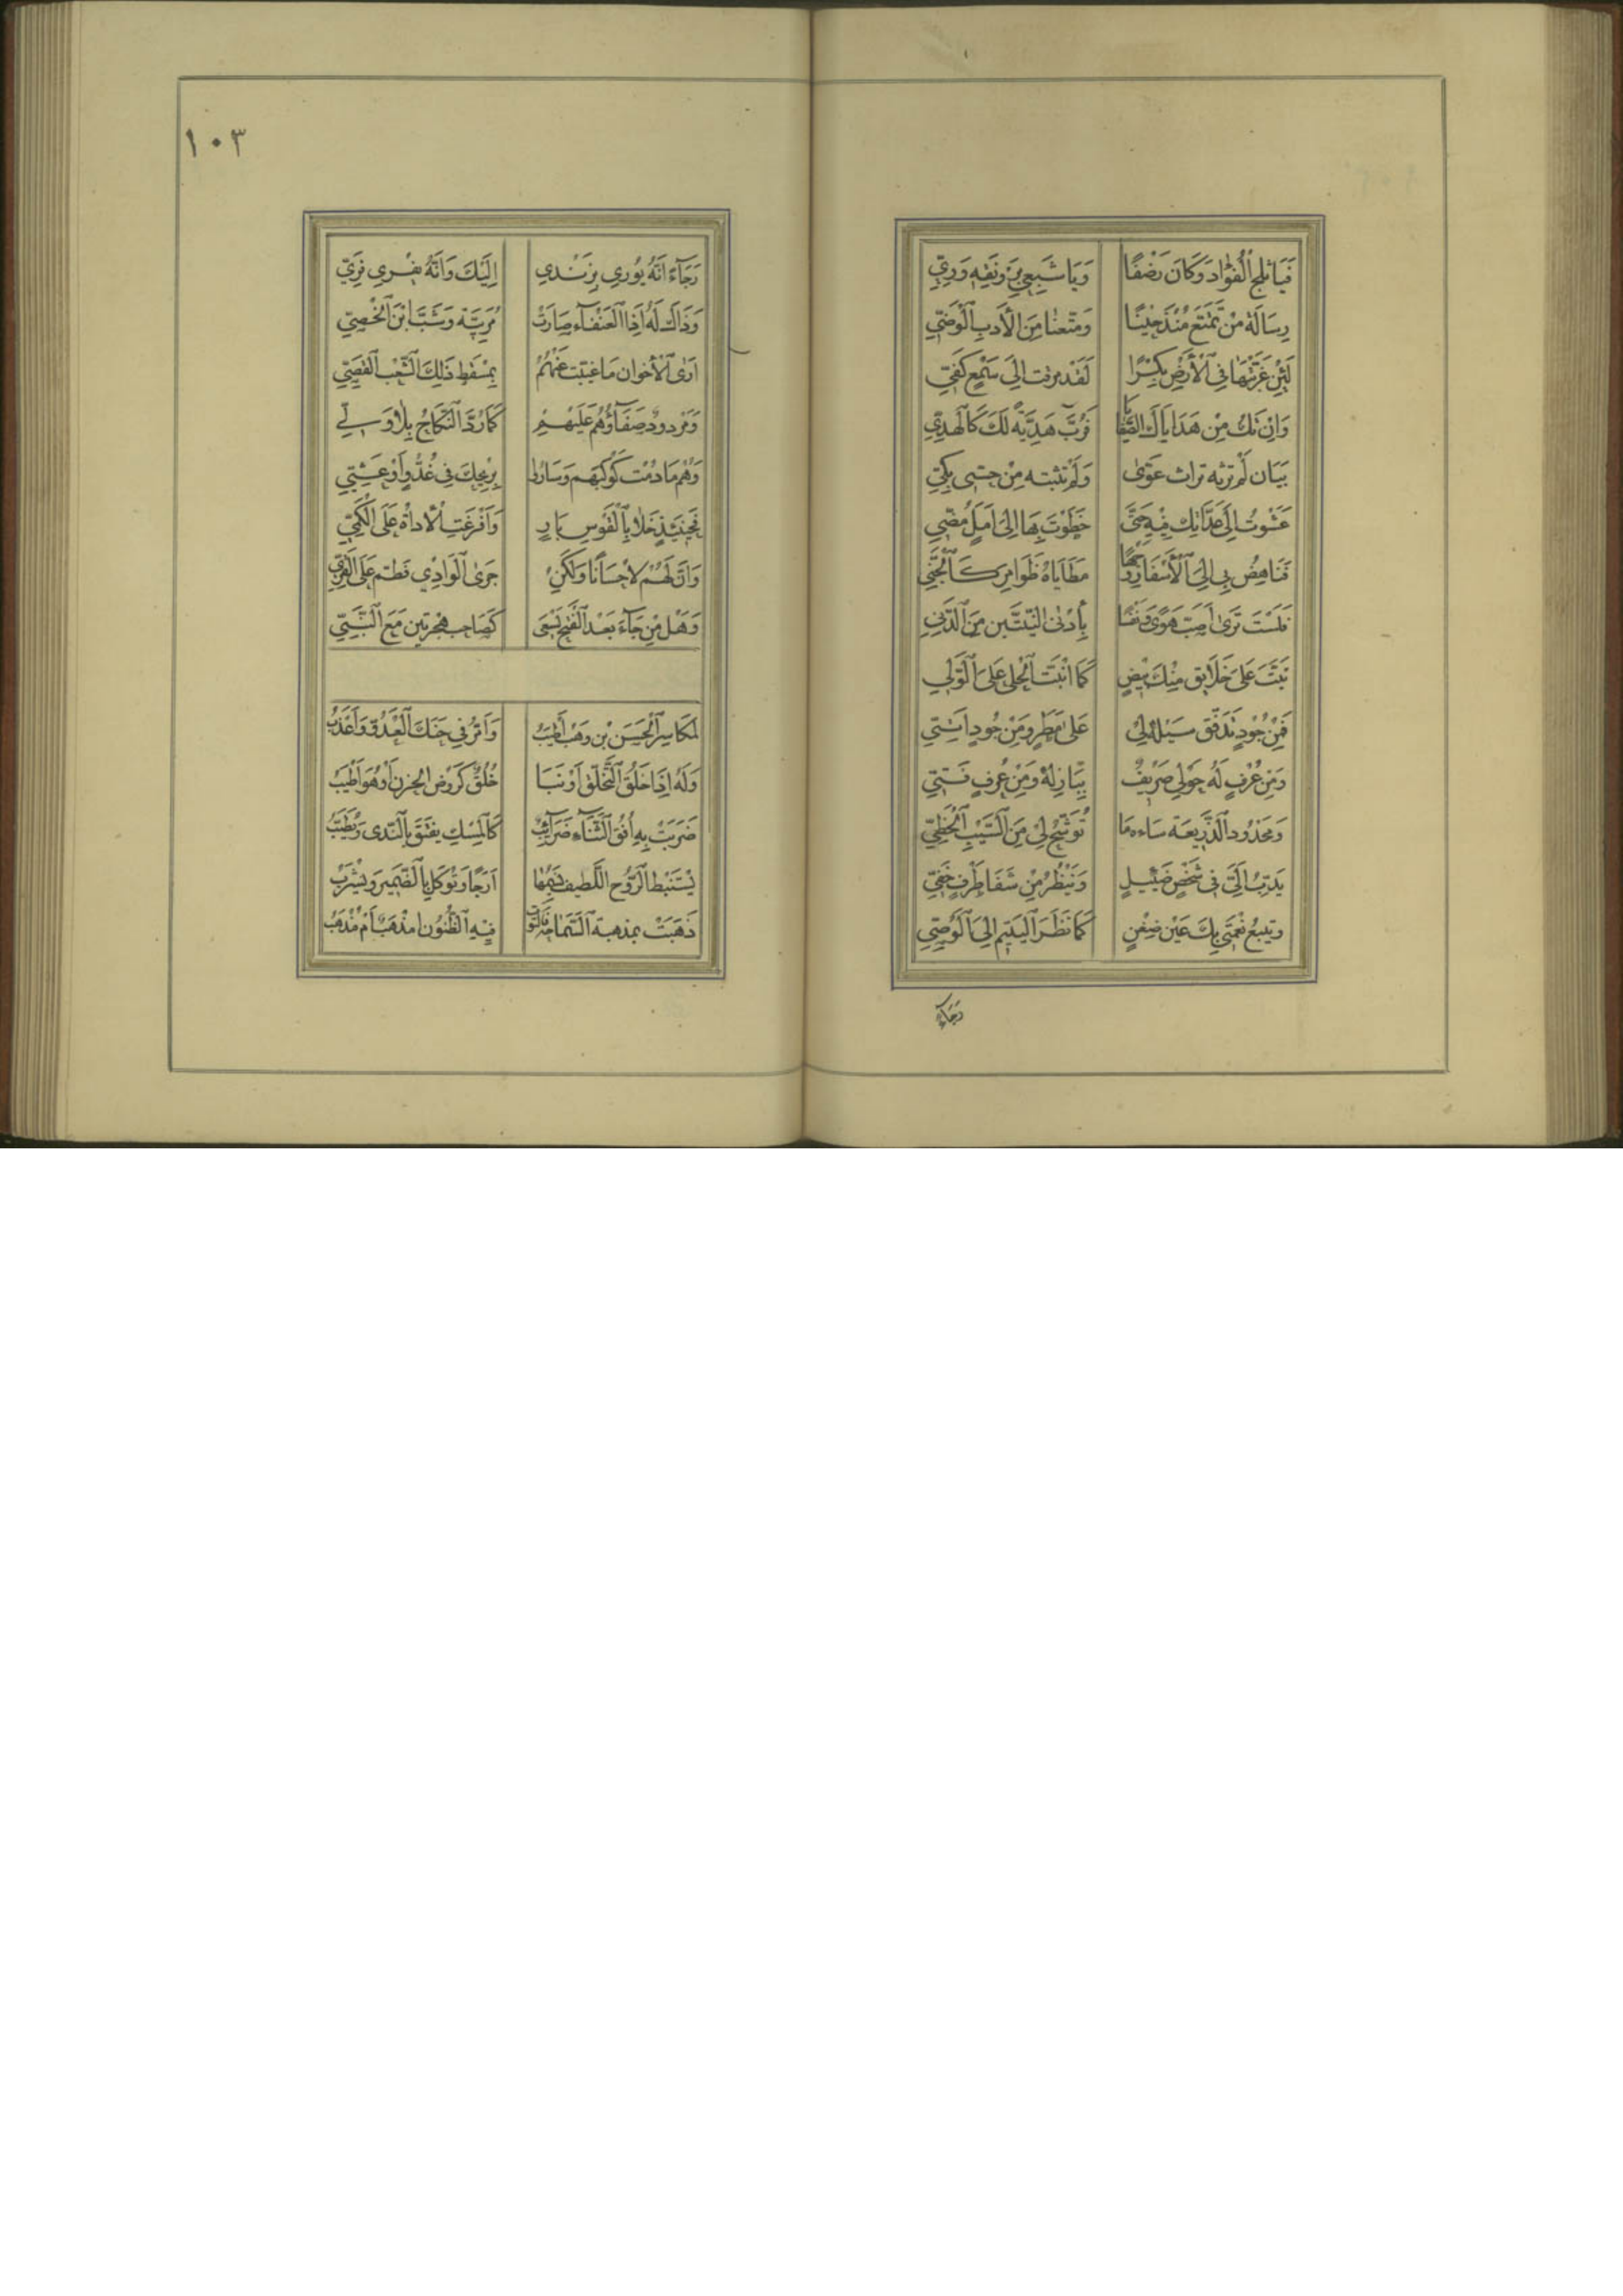 فَيَا ثلج الْفُؤَاد وَكَانَ رَضْفًا وَيَا شَبَعِي بِرَوْنَقِهِ وَرِيِّي
رِسَالَةُ مَنْ تَمَتَّعَ مُنْذُ حِينًا وَمَتَّعَنَا مِنَ الْأَدَبِ الْوَضِيِّ
لَئِنْ غَرَّبْتَهَا فِي الْأَرْضِ بِكْرًا لَقَدْ زفت اِلَى سَمْعٍ كَفِيِّ
وَاِنْ تَكُ مِنْ هَدَايَاكَ الصَّفَايَا فَرُبَّ هَدِيَّةٍ لَكَ كَالْهَدِيِّ
بَيَان لَمْ تَرِثْهُ تراث دَعْوَى وَلَمْ تنبته مِنْ حسى بَكِيِّ
عَشَوْتُ اِلَى عِدَاتِكَ فِيهِ حَتَّى خَطَوْتَ بِهَا اِلَى اَمَلٍ مُضِيِّ
فَنَاهِضْ بِي اِلَى الْأَسْفَارِ وَجْهًا مَطَايَاهُ ضَوَامِر كَالْحَنِيِّ
فَلَسْتَ تَرَى اَصَبَّ هَوًى وَنَفْسًا بِأَدْنَى النِّيَّتَيْنِ مِنَ الدَّنِيِّ
نَبَتَّ عَلَى خَلَائِق مِنْكَ بِيضٍ كَمَا نَبَتَ الْحَلِيُّ عَلَى الْوَلِيِّ
فَمِنْ جُودٍ تَدَفَّقَ سَيْلُهُ لِي عَلَى مَطَرٍ وَمِنْ جُودٍ اَتِيِّ
وَمِنْ عُرْفٍ لَهُ حَوْلِي صَرِيفٌ بِبَازِلِهِ وَمِنْ عُرْفٍ فَتِيِّ
وَمَحْدُود الذَّرِيعَة سَاءه مَا تُوَشِّحُ لِي مِنَ السَّيْبِ الْحَظِيِّ
يَدِبُّ اِلَيَّ فِي شَخْصٍ ضَئِيلٍ وَيَنْظُرُ مِنْ شَفَا طَرْفٍ خَفِيِّ
ويتبع نِعْمَتِي بِكَ عَيْن ضِغْنٍ كَمَا نَظَرَ الْيَتِيم اِلَى الْوَصِيِّ
رَجَاءً
١٠٣
رَجَاءً اَنَّهُ يُورِي بِزَنْدِي اِلَيْكَ وَاَنَّهُ يَفْرِي فَرِيِّي
وَذَاكَ لَهُ اِذَا الْعَنْقَاءُ صَارَتْ مُرَبِّيَة وَشَبَّ ابْنُ الْخَصِيِّ
اَرَى الْأخوان مَا غُيِّبْت عَنْهُمْ بِمَسْقَطِ ذَلِكَ الشِّعْبِ الْقَصِيِّ
وَمَرْدودٌ صَفَاؤُهُمْ عَلَيْهِمْ كَمَا رُدَّ النِّكَاحُ بِلَا وَلِيِّ
وَهُمْ مَا دُمْت كَوْكَبَهُمْ وَسَارُوا بِرِيحِكَ فِي غُدُوٍّ اَوْ عَشِيِّ
فَحِينَئِذٍ خَلَا بِالْقَوْسِ بَارٍ وَاَفْرَغَتِ الْاَدَاةُ عَلَى الْكَمِيِّ
وَاِنَّ لَهُمْ لاحْسَانًا وَلَكِنْ جَرَى الْوَادِي فَطَمَّ عَلَى الْقَرِيِّ
وَهَلْ مَنْ جَاءَ بَعْدَ الْفَتْحِ يَسْعَى كَصَاحِبِ هِجْرَتَيْنِ مَعَ النَّبِيِّ
لَمَكَاسِرُ الْحَسَنِ بْنِ وَهْبٍ اَطْيَبُ وَاَمَرُّ فِي حَنَكِ الْعَدُوِّ وَاَعْذَبُ
وَلَهُ اِذَا خَلُقَ التَّخَلُّق اَوْ نَبَا خُلُقٌ كَرَوْضِ الحزن اَوْ هُوَ اَطْيَبُ
ضَرَبَتْ بِهِ اُفُقَ الثَّنَاءِ ضَرَائِبٌ كَالْمِسْكِ يُفْتَقُ بِالنَّدَى وَيُطَيَّبُ
يَسْتَنْبِطُ الرُّوحَ اللَّطِيفَ نَسِيمُهَا اَرَجًا وَتُؤكَلُ بِالضَّمِيرِ وَيُشْرَبُ
ذَهَبَتْ بِمُذْهَبِهِ السَّمَاحَةُ فَالْتَوَتْ فِيهِ الظُّنُونُ اَمَذْهَبٌ اَمْ مُذْهَبُ